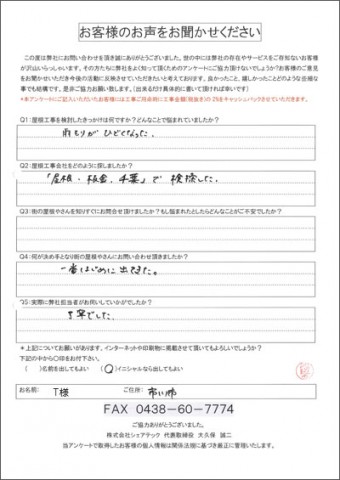 お客様のお声をお聞かせください
この度は弊社にお問い合わせを頂き誠にありがとうございました。世の中には弊社の存在やサービスをご存知ないお客様
が沢山いらっしゃいます。その方たちに弊社をよく知って頂くためのアンケートにご協力頂けないでしょうか?お客様のご意見
をお聞かせいただき今後の活動に反映させていただきたいと考えております。良かったこと、嬉しかったことどのような些細な
事でも結構です。是非ご協力お願い致します。(出来るだけ具体的に書いて頂ければ幸いです)
*本アンケートにご記入いただいたお客様には工事ご用命時に工事金額(税抜き)の2%をキャッシュバックさせていただきます。
Q1:屋根工事を検討したきっかけは何ですか?どんなことで悩まれていましたか?
雨もりがひどくなった。
Q2:屋根工事会社をどのように探しましたか?
「屋根・板金・千葉」で検索した。
Q3:街の屋根やさんを知りすぐにお問合せ頂けましたか?もし悩まれたとしたらどんなことがご不安でしたか?
Q4:何が決め手となり街の屋根やさんにお問い合わせ頂きましたか?
一番はじめに出てきた。
Q5:実際に弊社担当者がお伺いしていかがでしたか?
丁寧でした。
*上記についてお願いがあります。インターネットや印刷物に掲載させて頂いてもよろしいでしょうか?
下記の中から〇印をお付下さい。
( )名前を出してもよい (〇)イニシャルなら出してもよい
お名前: T様 ご住所: 市川市
FAX 0438-60-7774
ご協力ありがとうございました。
株式会社シェアテック 代表取締役 大久保 誠二
当アンケートで取得したお客様の個人情報は関係法規に基づき厳正に管理いたします。